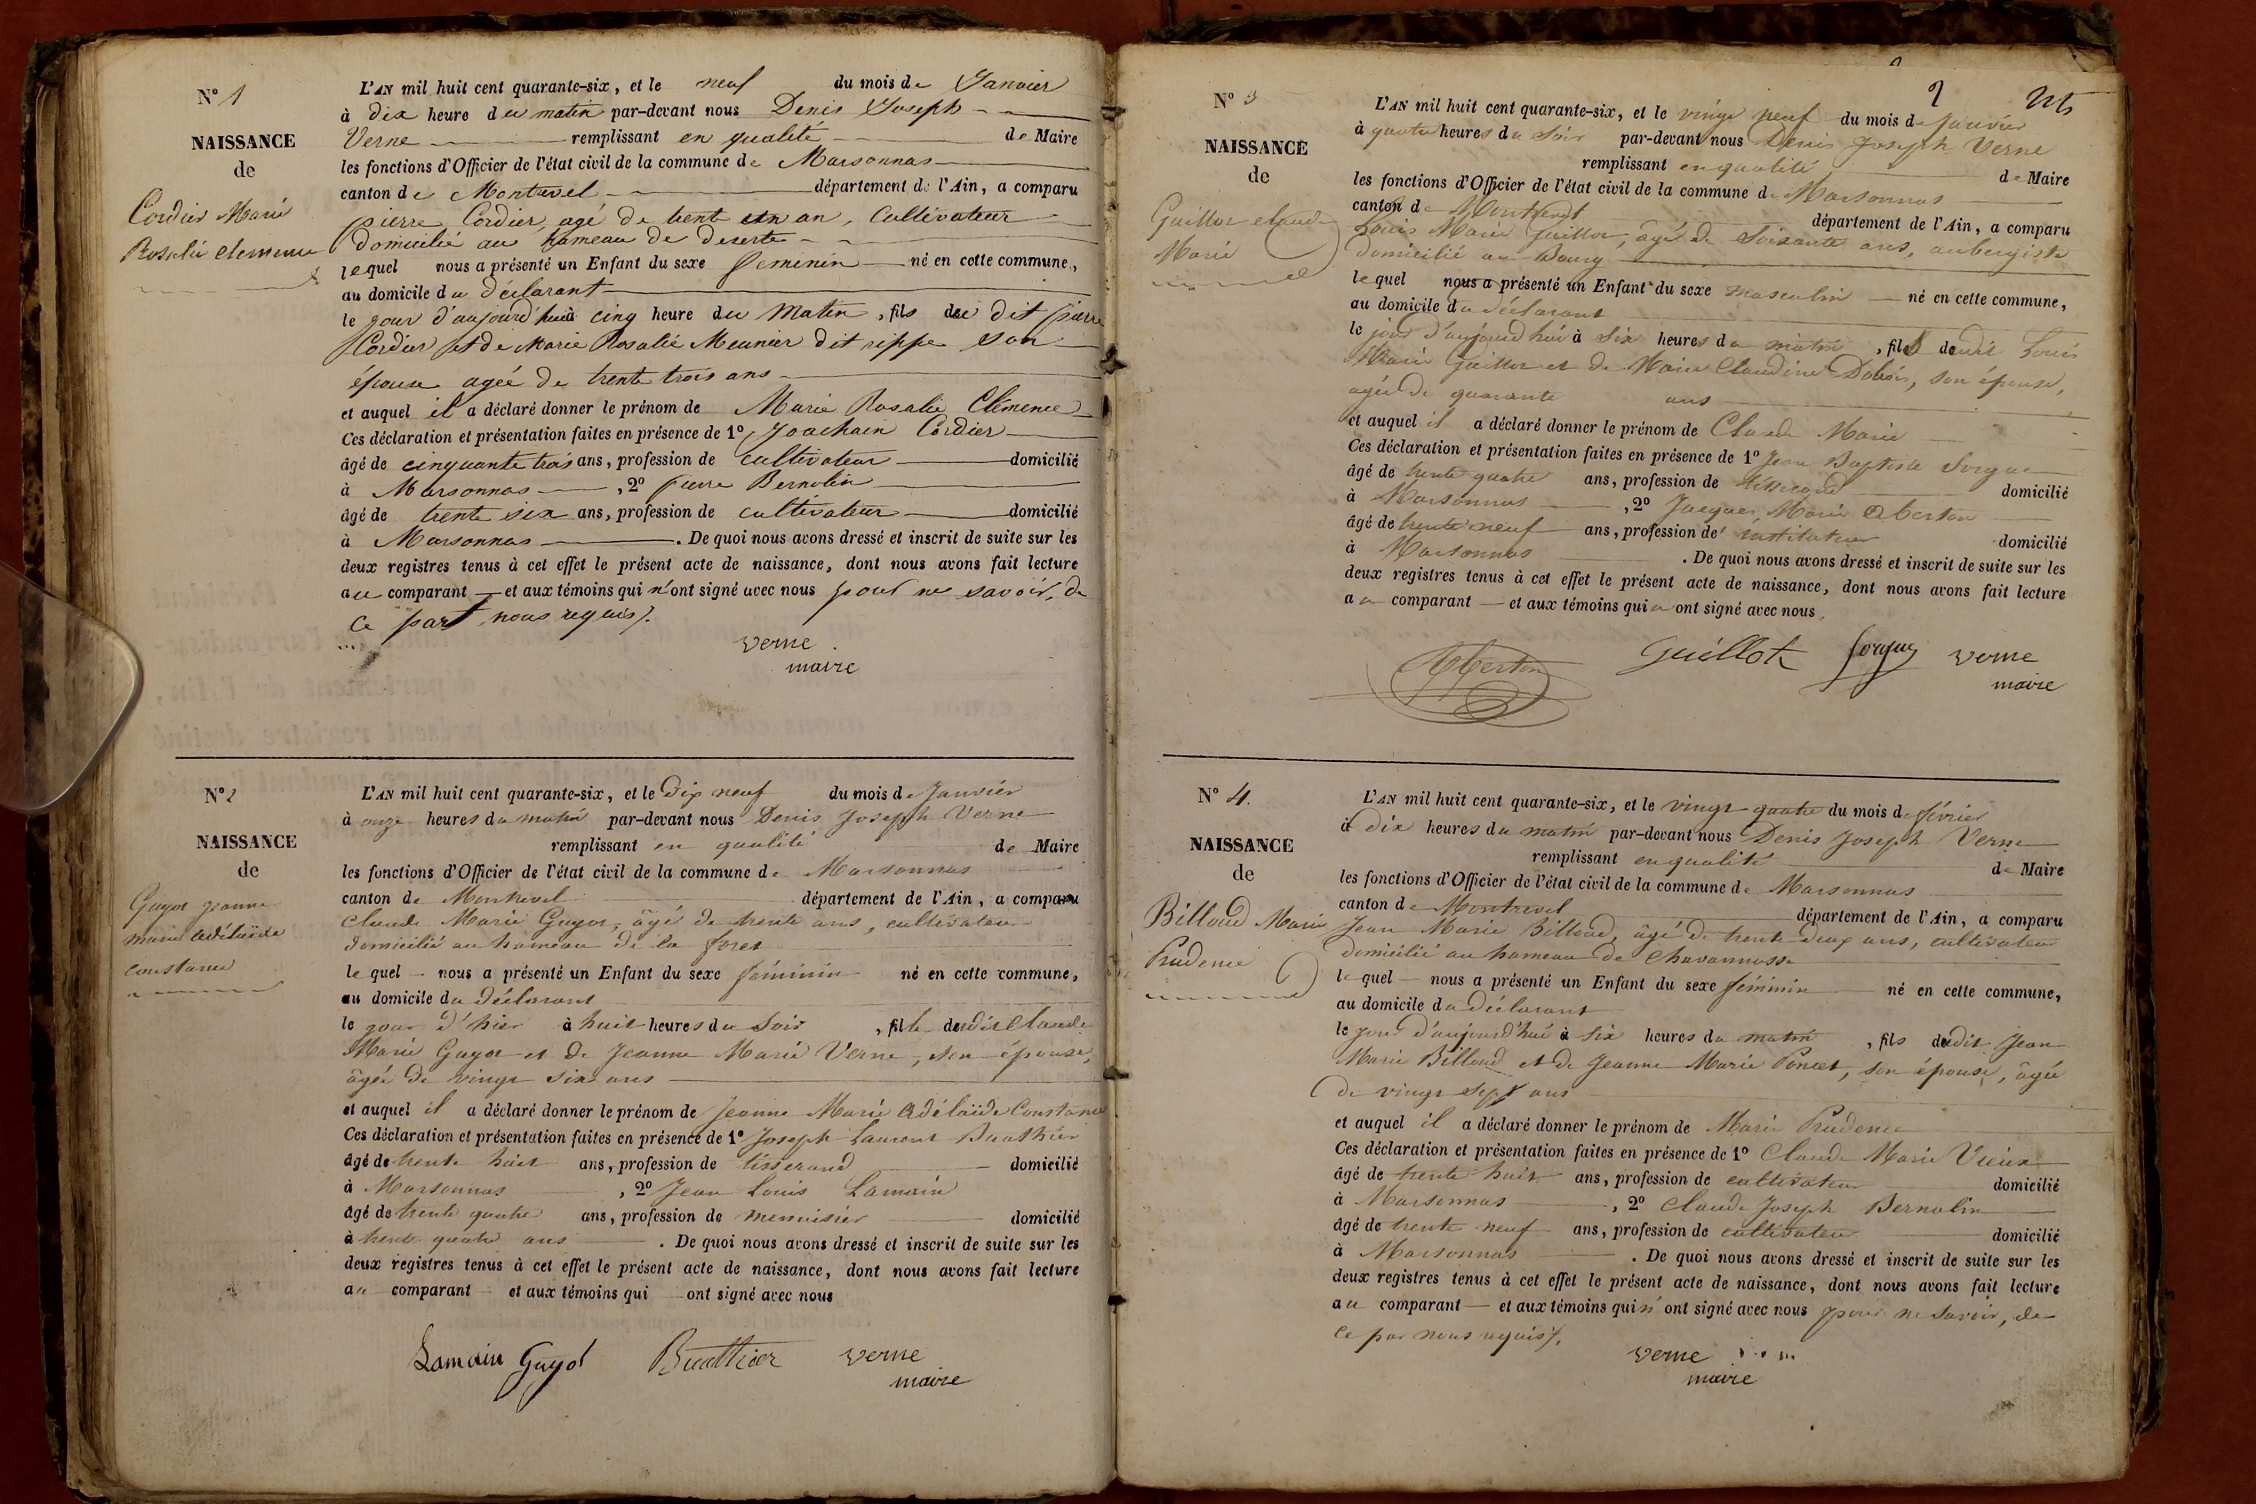 N° 1
NAISSANCE
de
Cordier Marie
Rosalie Clemence
L'AN mil huit cent quarante-six, et le neuf du mois de Janvier
à dix heure du matin par-devant nous Denis Joseph
Verne remplissant en qualité de Maire
les fonctions d'Officier de l'état civil de la commune de Marsonnas
canton de Montrevel département de l'Ain, a comparu
pierre Cordier, agé de trent un an, Cultivateur
domicilié au hameau de deserte
lequel nous a présenté un Enfant du sexe femenin né en cette commune,
au domicile du déclarant
le jour d'aujourd'hui à cinq heure du Matin, fils du dit pierre
Cordier et de Marie Rosalie Meunier dit sippe son
épouse agée de trente trois ans
et auquel il a déclaré donner le prénom de Marie Rosalie Clémence
Ces déclaration et présentation faites en présence de 1° Joachain Cordier
âgé de cinquante trois ans, profession de cultivateur domicilié
à Marsonnas, 2° pierre Bernolin
âgé de trente six ans, profession de cultivateur domicilié
à Marsonnas. De quoi nous avons dressé et inscrit de suite sur les
deux registres tenus à cet effet le présent acte de naissance, dont nous avons fait lecture
au comparant et aux témoins qui n'ont signé avec nous pour ne savoir, de
ce part nous requis.
verne
maire
N° 2
NAISSANCE
de
Guyot jeanne
marie adélaïde
constance
L'AN mil huit cent quarante-six, et le dix neuf du mois de Janvier
à onze heures du matin par-devant nous Denis Joseph Verne
remplissant en qualité de Maire
les fonctions d'Officier de l'état civil de la commune de Marsonnas
canton de Montrevel département de l'Ain, a comparu
Claude Marie Guyot, âgé de trente ans, cultivateur
domicilié au hameau de la foret
le quel nous a présenté un Enfant du sexe féminin né en cette commune,
au domicile du déclarant
le jour d'hier à huit heures du Soir, fille dudit Claude
Marie Guyot et de Jeanne Marie Verne, son épouse,
âgée de vingt six ans
et auquel il a déclaré donner le prénom de Jeanne Marie Adélaïde Constance
Ces déclaration et présentation faites en présence de 1° Joseph Laurent Buathier
âgé de trente huit ans, profession de tisserand domicilié
à Marsonnas, 2° Jean Louis Lamain
âgé de trente quatre ans, profession de menuisier domicilié
à trente quatre ans. De quoi nous avons dressé et inscrit de suite sur les
deux registres tenus à cet effet le présent acte de naissance, dont nous avons fait lecture
au comparant et aux témoins qui ont signé avec nous
Lamain Guyot Buathier verne
maire
2
N° 3
NAISSANCE
de
Guillot Claude
Marie
L'AN mil huit cent quarante-six, et le vingt neuf du mois de Janvier
à quatre heures du Soir par-devant nous Denis Joseph Verne
remplissant en qualité de Maire
les fonctions d'Officier de l'état civil de la commune de Marsonnas
canton de Montrevel département de l'Ain, a comparu
Louis Marie Guillot, âgé de Soixante ans, aubergiste
domicilié au Bourg
lequel nous a présenté un Enfant du sexe masculin né en cette commune,
au domicile du déclarant
le jour d'aujourd'hui à six heures du matin, fils dudit Louis
Marie Guillot et de Marie Claudine Dubois, son épouse,
agée de quarante ans
et auquel il a déclaré donner le prénom de Claude Marie
Ces déclaration et présentation faites en présence de 1° Jean Baptiste Sorgue
âgé de trente quatre ans, profession de tisserand domicilié
à Marsonnas, 2° Jacques Marie Aberton
âgé de trente neuf ans, profession de instituteur domicilié
à Marsonnas. De quoi nous avons dressé et inscrit de suite sur les
deux registres tenus à cet effet le présent acte de naissance, dont nous avons fait lecture
au comparant et aux témoins qui ont signé avec nous.
Guillot verne
maire
N° 4.
NAISSANCE
de
Billoud Marie
Prudence
L'AN mil huit cent quarante-six, et le vingt quatre du mois de février
à dix heures du matin par-devant nous Denis Joseph Verne
remplissant en qualité de Maire
les fonctions d'Officier de l'état civil de la commune de Marsonnas
canton de Montrevel département de l'Ain, a comparu
Jean Marie Billoud, âgé de trente deux ans, cultivateur
domicilié au hameau de Chavannosse
lequel nous a présenté un Enfant du sexe féminin né en cette commune,
au domicile du déclarant
le jour d'aujourd'hui à six heures du matin, fils dudit Jean
Marie Billoud et de Jeanne Marie Poncet, son épouse, âgée
de vingt sept ans
et auquel il a déclaré donner le prénom de Marie Prudence
Ces déclaration et présentation faites en présence de 1° Claude Marie Vieux
âgé de trente huit ans, profession de cultivateur domicilié
à Marsonnas, 2° Claude Joseph Bernolin
âgé de trente neuf ans, profession de cultivateur domicilié
à Marsonnas. De quoi nous avons dressé et inscrit de suite sur les
deux registres tenus à cet effet le présent acte de naissance, dont nous avons fait lecture
au comparant et aux témoins qui n'ont signé avec nous pour ne savoir, de
ce par nous requis.
verne
maire